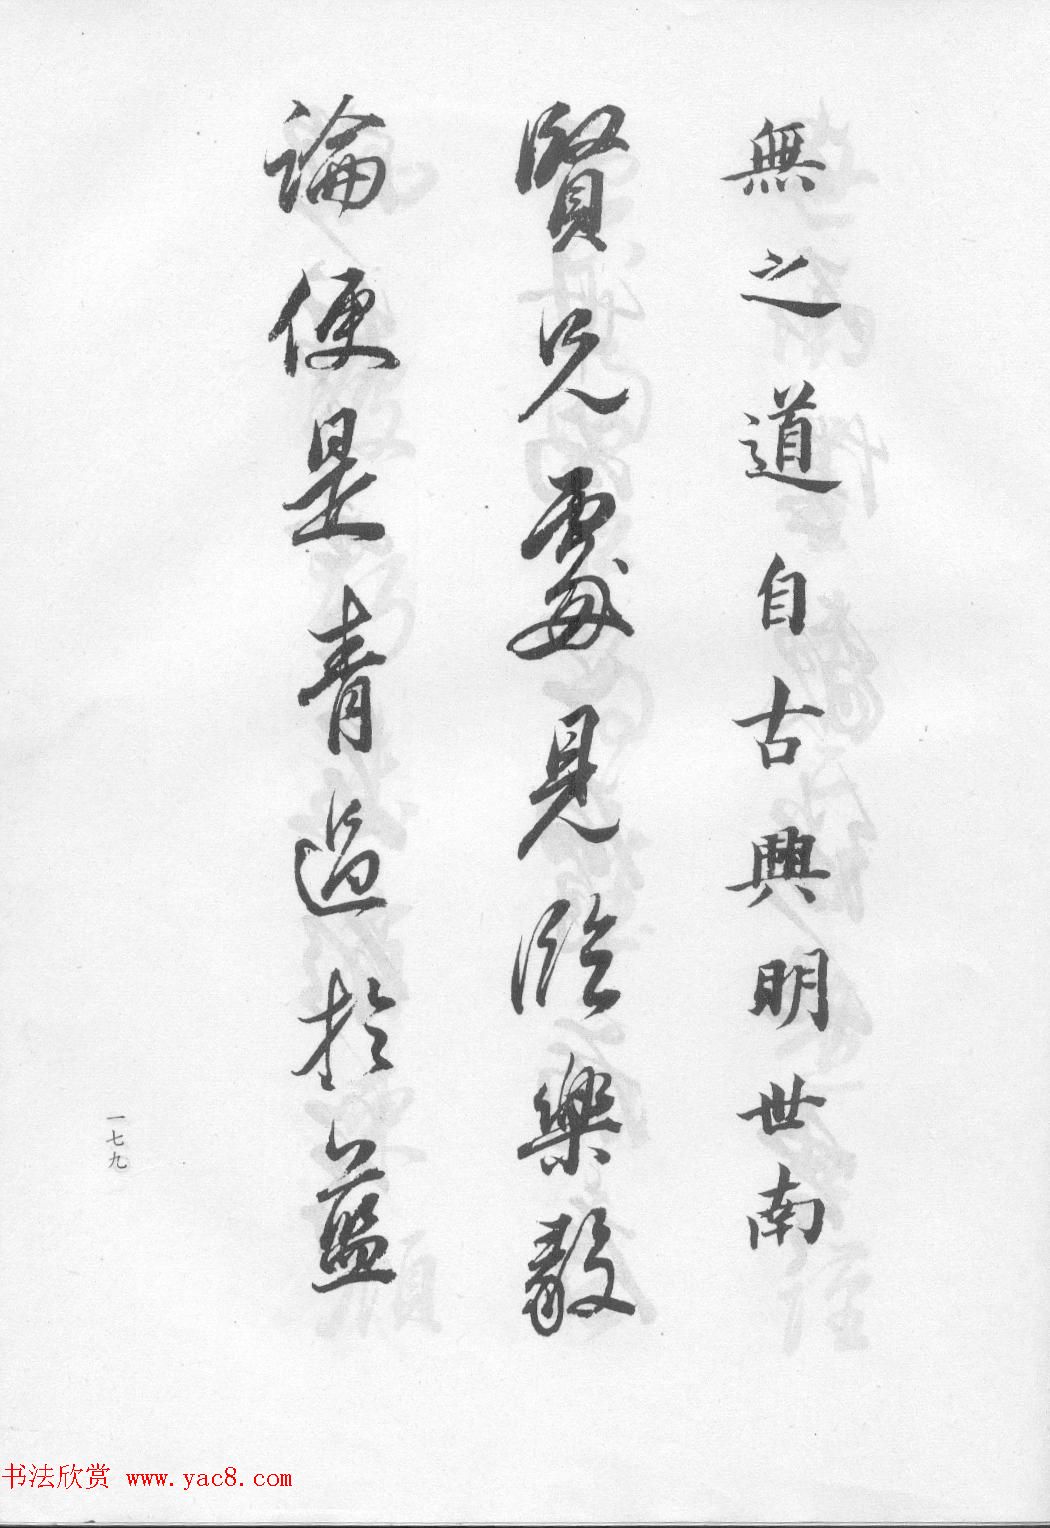 無之道自古興明世南
賢兄處見臨樂毅
論便是青過於藍
一七九
书法欣赏 www.yac8.com